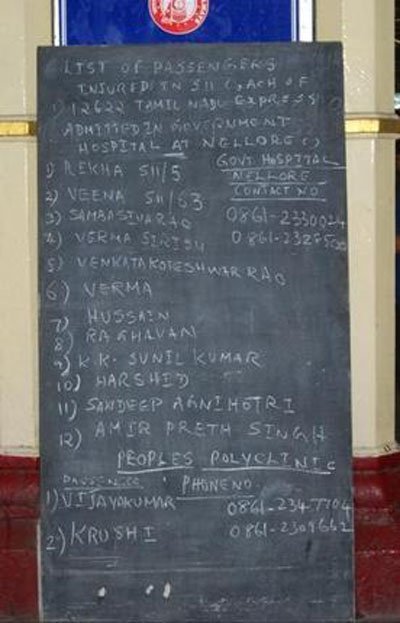 LIST OF PASSENGERS
INJURED IN S11 COACH OF
12622 TAMIL NADU EXPRESS
ADMITTED IN GOVERNMENT
HOSPITAL AT NELLORE
GOVT. HOSPITAL
NELLORE
CONTACT NO
0861-2330024
0861-232
1) REKHA S11/5
2) VEENA S11/63
3) SAMBASIVARAO
4) VERMA SIRISH
5) VENKATAKOTESHWAR RAO
6) VERMA
7) HUSSAIN
8) RAGHAVAN
9) K.K. SUNIL KUMAR
10) HARSHID
11) SANDEEP AGNIHOTRI
12) AMIR PRETH SINGH
PEOPLES POLYCLINIC
PHONE NO.
1) VIJAYAKUMAR 0861-2347704
2) KRUSHI 0861-2309662